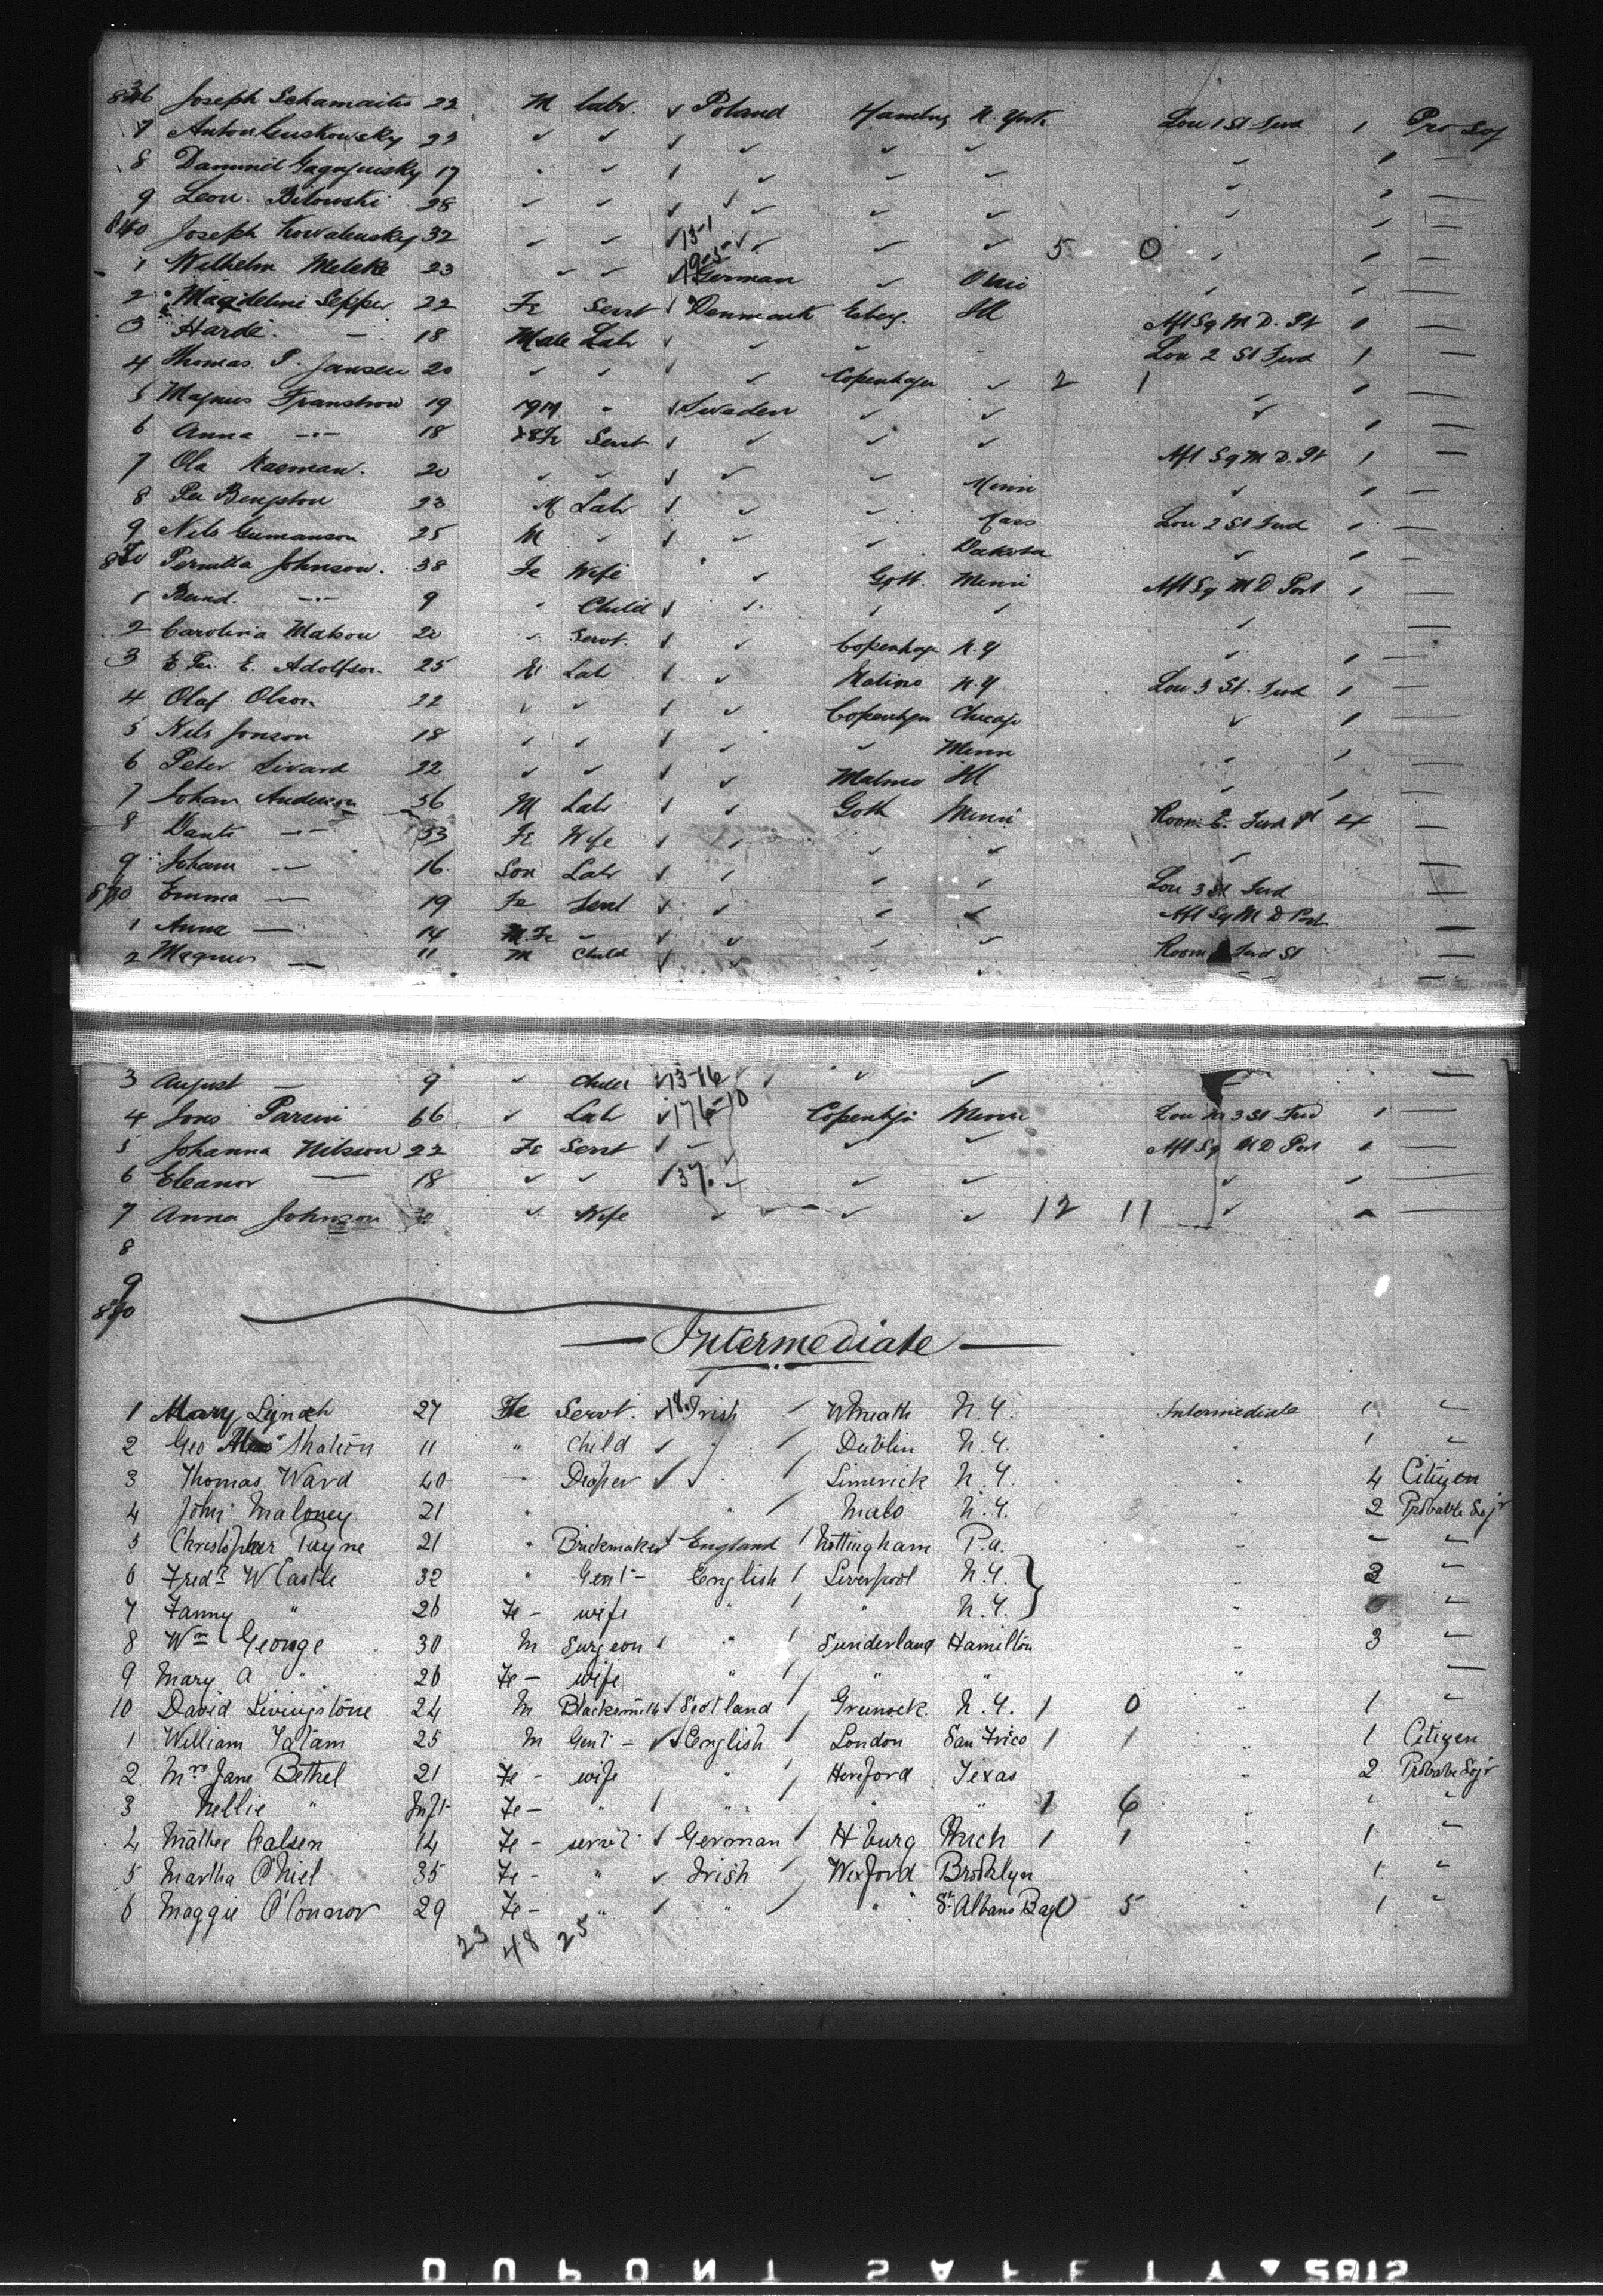 836 Joseph Schamaitis 22 M Labr. ✓ Poland Hamburg N. York Low 1 St Fwd 1 Pro Soj
7 Anton 23 ✓ ✓ ✓ ✓ ✓ ✓ ✓ 1 —
8 17 " ✓ ✓ ✓ ✓ ✓ ✓ 1 —
9 Leon. Bilowski 28 ✓ ✓ ✓ ✓ ✓ ✓ ✓ 1 —
840 Joseph Kowalensky 32 ✓ ✓ ✓ 13-1 ✓ ✓ ✓ 5 0 ✓ 1 —
1 Wilhelm Meleke 23 ✓ ✓ ✓ German ✓ Ohio ✓ 1 —
2 Magdeline Sepper 22 Fe Servt ✓ Denmark Esberg. Ill Aft Sq M D. Pt 1 —
3 Harde. — 18 Male Labr ✓ ✓ ✓ Low 2 St Fwd 1 —
4 Thomas P. Jansen 20 ✓ ✓ ✓ ✓ Copenhagen ✓ 2 1 ✓ 1 —
5 Magnus 19 19 M " ✓ Sweden ✓ ✓ ✓ 1 —
6 Anna —"— 18 18 Fe Servt ✓ ✓ ✓ ✓ Aft Sq M D. Pt 1 —
7 Ola Kasman. 20 ✓ ✓ ✓ ✓ ✓ Minn ✓ 1 —
8 Per Bengston 23 M Labr ✓ ✓ ✓ Mass Low 2 St Fwd 1 —
9 Nils Gumanson 25 M ✓ ✓ ✓ ✓ Dakota ✓ 1 —
850 Pernilla Johnson. 38 Fe Wife " ✓ Gott. Minn Aft Sq M D Port 1 —
1 —"— 9 " Child ✓ ✓ ✓ ✓ ✓ —
2 Carolina Matson 20 ✓ Servt. ✓ ✓ Copenhagn N.Y ✓ 1 —
3 E. Adolfson. 25 M Labr ✓ ✓ N.Y Low 3 St. Fwd 1 —
4 Olaf Olson 22 ✓ ✓ ✓ ✓ Copenhgn Chicago ✓ 1 —
5 Nils Jonson 18 ✓ ✓ ✓ ✓ ✓ Minn ✓ 1 —
6 Peter Sivard 22 ✓ ✓ ✓ ✓ Malmo Ill ✓ 1 —
7 Johan Anderson 36 M Labr ✓ ✓ Goth Minn Room E. Fwd St 4 —
8 —"— 33 Fe Wife ✓ ✓ ✓ ✓ ✓ —
9 Johann —"— 16 Son Labr ✓ ✓ ✓ ✓ Low 3 St Fwd —
870 Emma — 19 Fe Servt ✓ ✓ ✓ ✓ Aft Sq M D Port —
1 Anna — 14 Fe ✓ ✓ ✓ ✓ ✓ —
2 Magnus — 11 M Child ✓ ✓ ✓ ✓ Room Fwd St —
3 August — 9 ✓ Child ✓ 13-16 ✓ ✓ ✓ —
4 Jons 66 ✓ Labr ✓ 176-10 Copenhgn Minn Low 3 St Fwd 1 —
5 Johanna Nilsson 22 Fe Servt ✓ — ✓ ✓ Aft Sq M D Port 1 —
6 Eleanor — 18 ✓ ✓ ✓ 37. ✓ ✓ ✓ ✓ ✓ —
7 Anna Johnson 30 ✓ Wife ✓ ✓ ✓ ✓ 12 11 ✓ 1 —
8
9
880
— Intermediate —
1 Mary Lynch 27 Fe Servt. ✓ 18. Irish / Wmeath N.Y. Intermediate 1 "
2 Geo Shalion 11 " Child ✓ " / Dublin N.Y. " 1 "
3 Thomas Ward 40 " Draper ✓ " / Limerick N.Y. " 4 Citizen
4 John Maloney 21 " " / N.Y. " 2 Probable Sojr
5 Christopher Payne 21 " Brickmaker ✓ England / Nottingham P.a. " " "
6 Fredk W Castle 32 " Gent - English / Liverpool N.Y. } " 2 "
7 Fanny " 26 Fe - wife " / " N.Y. "
8 Wm George 30 M Surgeon ✓ " / Sunderland Hamilton " 3 "
9 Mary A " 26 Fe - wife " / " " " —
10 David Livingstone 24 M Blacksmith ✓ Scotland / Greenock. N.Y. 1 0 " 1 "
1 William Tatam 25 M Gent - ✓ English / London San Frico 1 1 " 1 Citizen
2 Mrs Jane Bethel 21 Fe - wife " / Hereford Texas " 2 Probable Sojr
3 Nellie " Inft Fe - " / " " " 1 6 " " "
4 14 Fe - servt ✓ German / H burg Mich 1 1 " 1 "
5 Martha O'Niel 35 Fe - " ✓ Irish / Wexford Brooklyn " 1 "
6 Maggie O'Connor 29 Fe - " ✓ " / " St Albans Bay 0 5 " 1 "
23 48 25
DUPONT SAFETY ▼ 5812